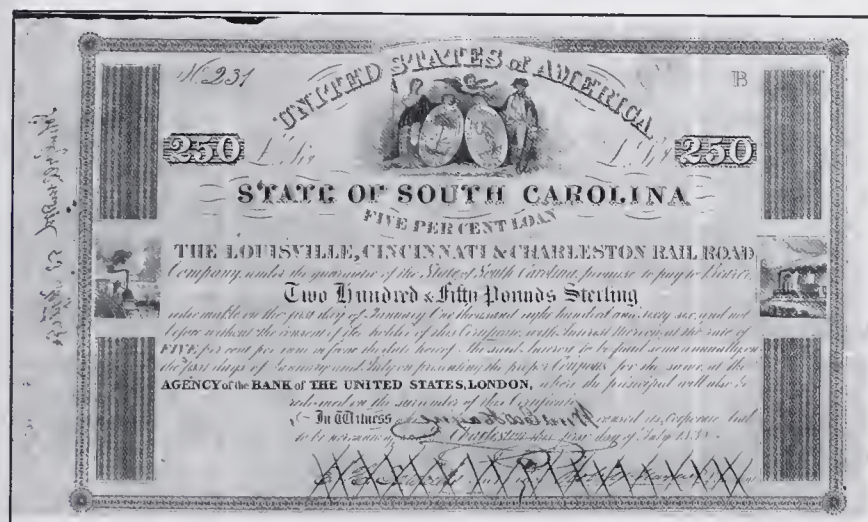 No. 231
UNITED STATES of AMERICA
B
250 £ Stg £ Stg 250
STATE OF SOUTH CAROLINA
FIVE PER CENT LOAN
THE LOUISVILLE, CINCINNATI & CHARLESTON RAIL ROAD
Company, under the guarantee of the State of South Carolina, promise to pay to Bearer,
Two Hundred & Fifty Pounds Sterling
on the first day of January One thousand eight hundred and sixty six, and not
before without the consent of the holder of this Certificate, with Interest thereon at the rate of
FIVE per cent per annum from the date hereof. The said Interest to be paid semi annually on
the first days of January and July on presenting the proper Coupons for the same, at the
AGENCY of the BANK of THE UNITED STATES, LONDON, where the principal will also be
redeemed on the surrender of this Certificate.
In Witness caused its Corporate Seal
to be Charleston this first day of July